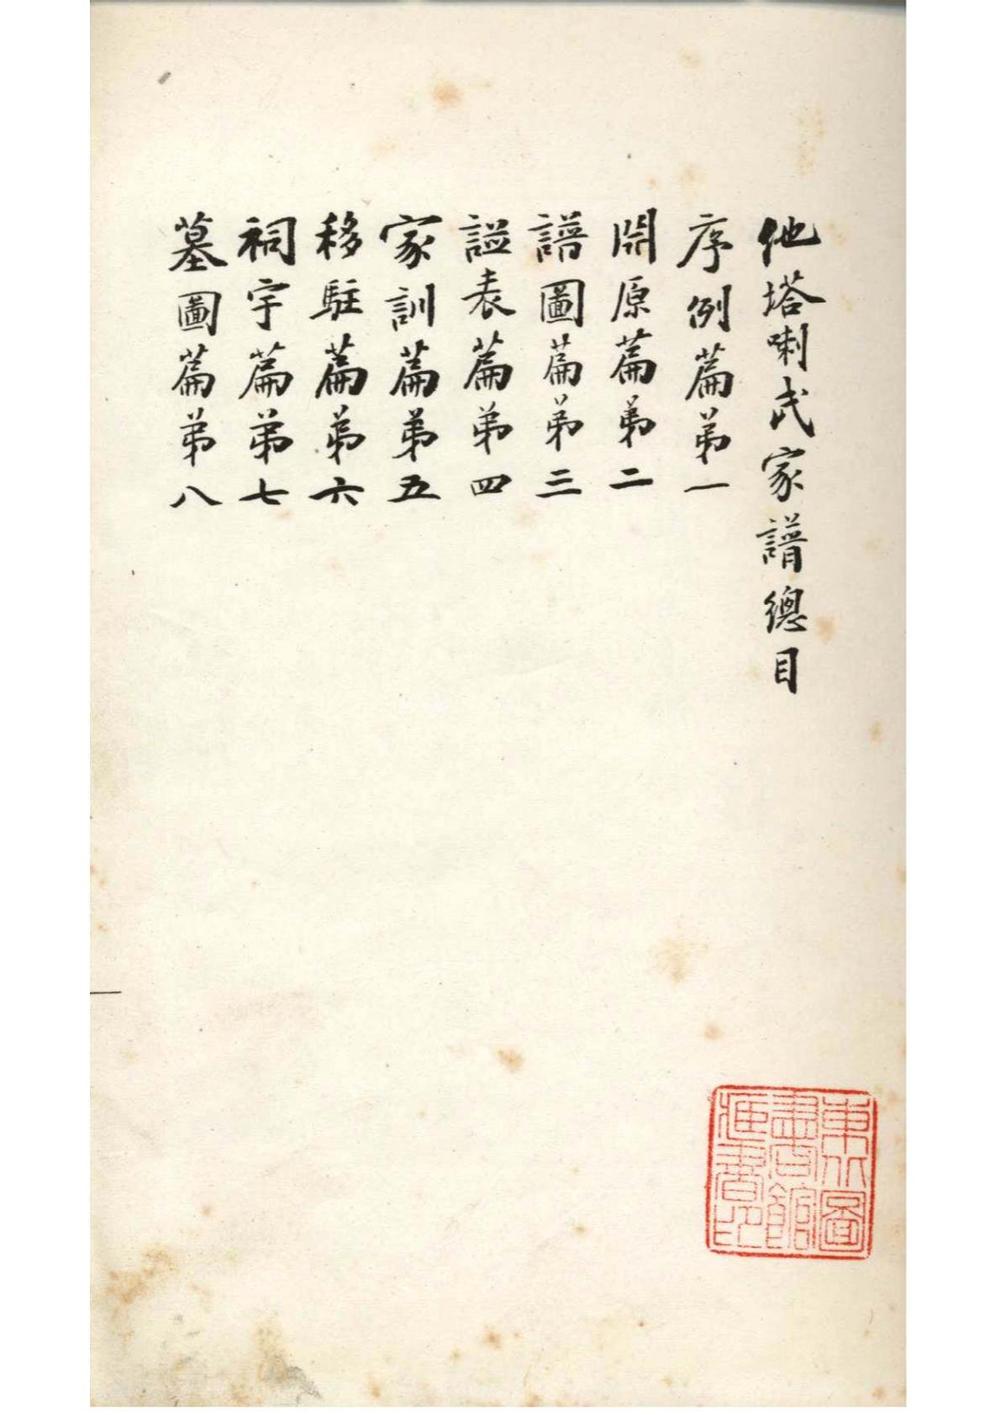 他塔喇氏家譜總目
序例篇弟一
開原篇弟二
譜圖篇弟三
謚表篇弟四
家訓篇弟五
移駐篇弟六
祠宇篇弟七
墓圖篇弟八
東北圖
書館
藏書印